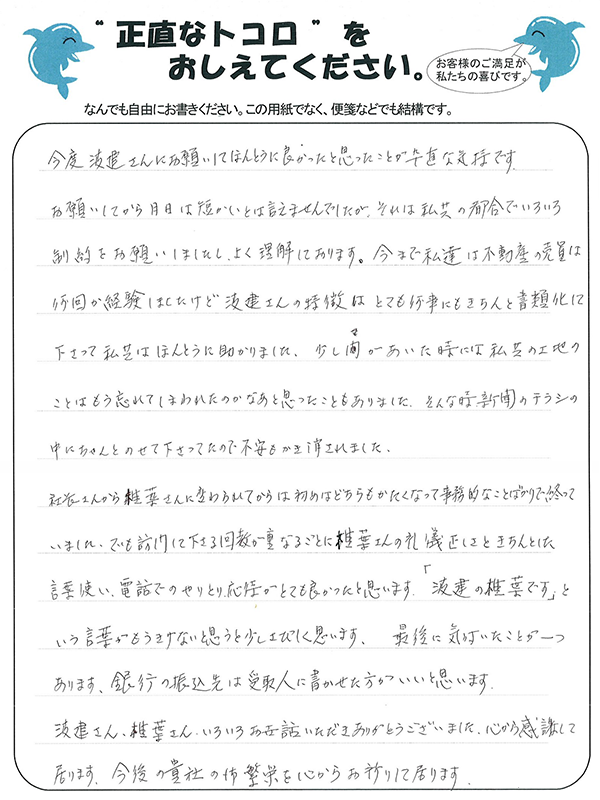 “正直なトコロ”を
おしえてください。
お客様のご満足が
私たちの喜びです。
なんでも自由にお書きください。この用紙でなく、便箋などでも結構です。
今度波建さんにお願いしてほんとうに良かったと思ったことが正直な気持です。
お願いしてから月日は短かいとは言えませんでしたが、それは私共の都合でいろいろ
制約をお願いしましたし、よく理解しております。今まで私達は不動産の売買は
何回か経験はしたけど波建さんの特徴はとても何事にもきちんと書類化して
下さって私共はほんとうに助かりました、少し間があいた時には私共の土地の
ことはもう忘れてしまわれたのかなあと思ったこともありました、そんな時新聞のチラシの
中にちゃんとのせて下さってたので不安もかき消されました、
社長さんから椎葉さんに変わられてからは初めはどちらもかたくなって事務的なことばかりで終って
いました、でも訪問して下さる回数が重なるごとに椎葉さんの礼儀正しさときちんとした
言葉使い、電話でのやりとり、応待がとても良かったと思います、「波建の椎葉です」と
いう言葉がもうきけないと思うと少しさびしく思います、 最後に気付いたことが一つ
あります、銀行の振込先は受取人に書かせた方がいいと思います、
波建さん、椎葉さん、いろいろお世話いただきありがとうございました、心から感謝して
居ります、今後の貴社の御繁栄を心からお祈りして居ります、